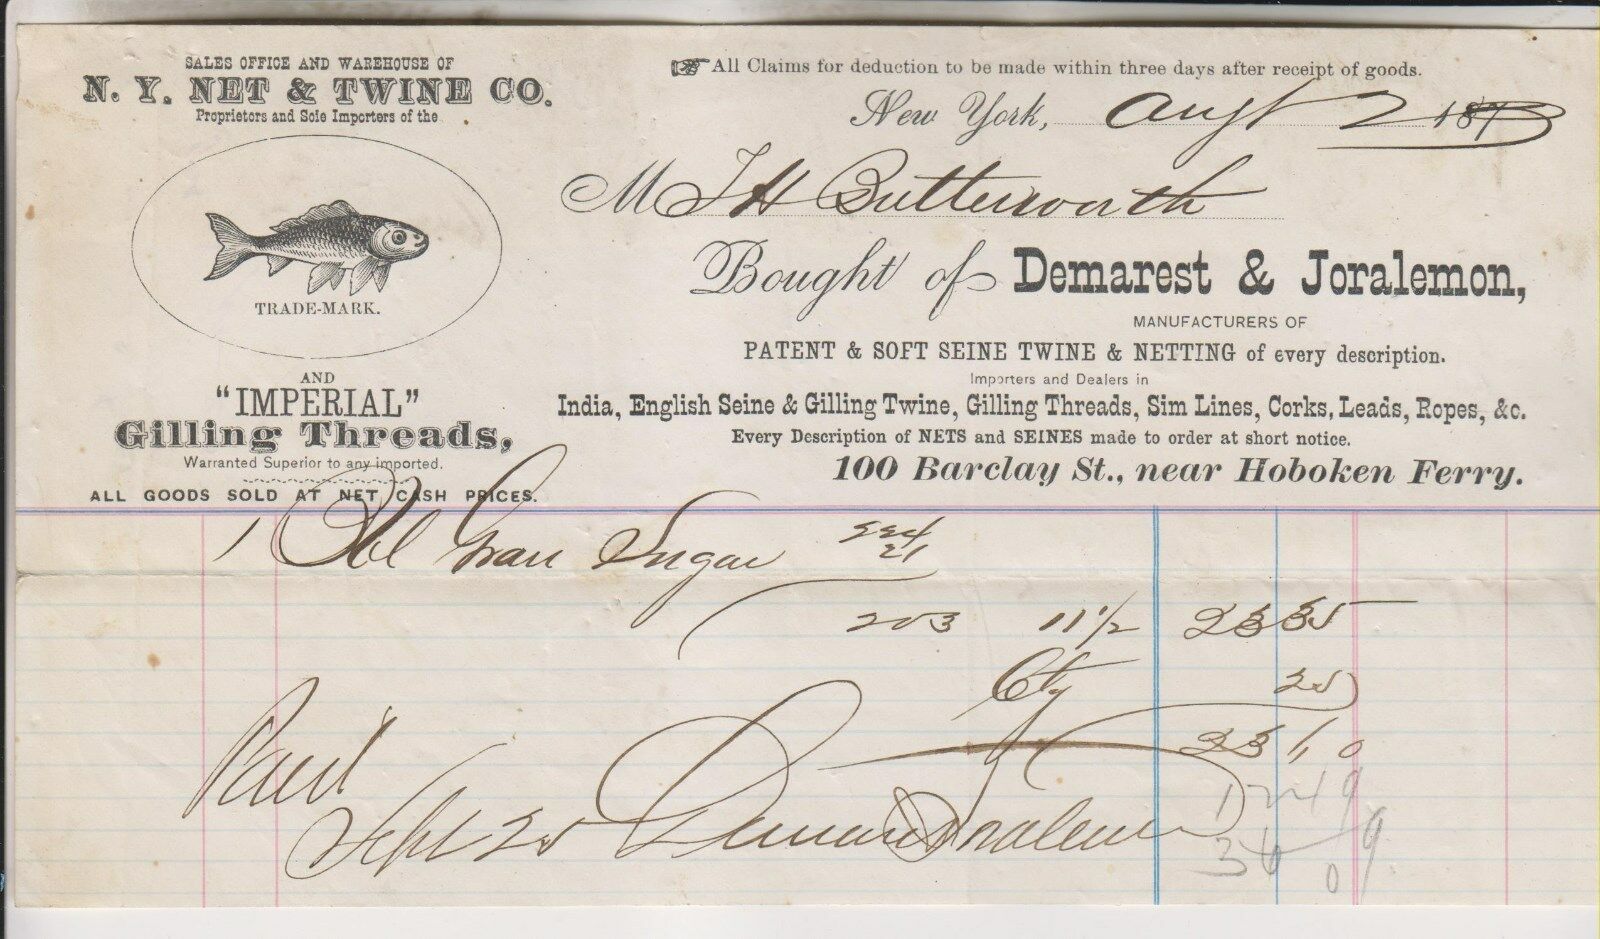 SALES OFFICE AND WAREHOUSE OF
N. Y. NET & TWINE CO.
Proprietors and Sole Importers of the
TRADE-MARK.
AND
"IMPERIAL"
Gilling Threads,
Warranted Superior to any imported.
ALL GOODS SOLD AT NET CASH PRICES.
All Claims for deduction to be made within three days after receipt of goods.
New York, Augt 2 1873
M J H Butterworth
Bought of Demarest & Joralemon,
MANUFACTURERS OF
PATENT & SOFT SEINE TWINE & NETTING of every description.
Importers and Dealers in
India, English Seine & Gilling Twine, Gilling Threads, Sim Lines, Corks, Leads, Ropes, &c.
Every Description of NETS and SEINES made to order at short notice.
100 Barclay St., near Hoboken Ferry.
1 Bbl Gran Sugar 224
21
203 11 1/2 23 35
Ctg 25
23 10
Paid
Sept 25 Demarest Joralemon
12 49
36 0 9